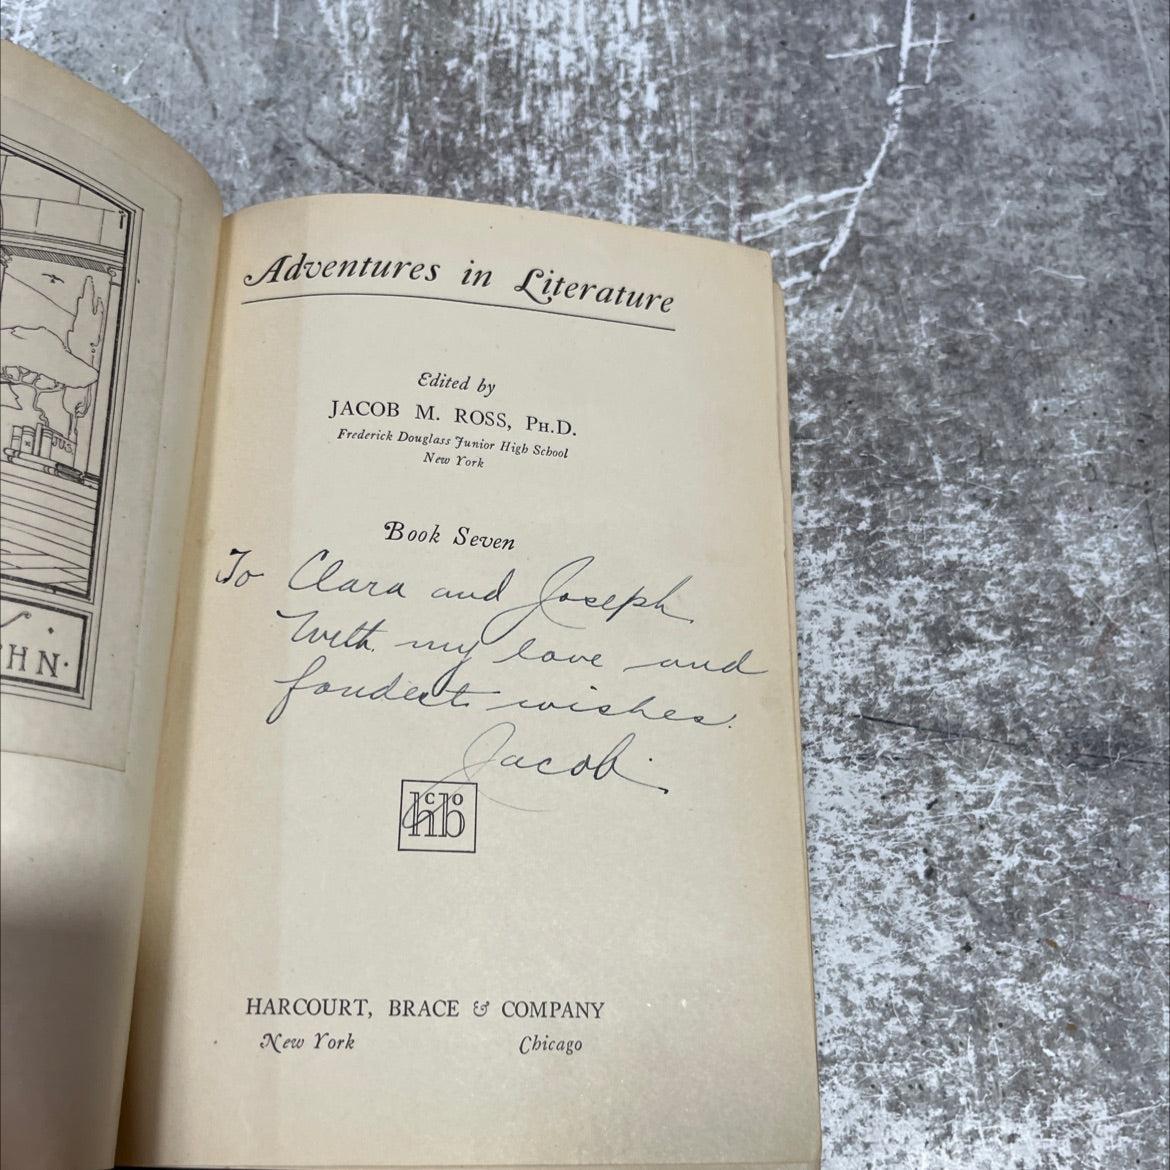 Adventures in Literature
Edited by
JACOB M. ROSS, PH.D.
Frederick Douglass Junior High School
New York
Book Seven
To Clara and Joseph
With my love and
fondest wishes.
Jacob.
hcbco
HARCOURT, BRACE & COMPANY
New York Chicago
HN·